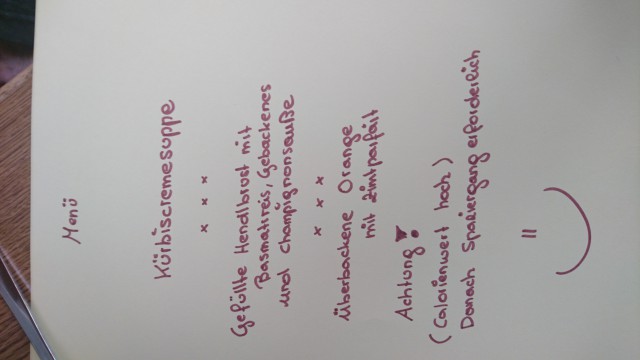 Menü
Kürbiscremesuppe
x x x
Gefüllte Hendlbrust mit
Basmatireis, Gebackenes
und Champignonsauße
x x x
Überbackene Orange
mit Zimtparfait
Achtung!
(Calorienwert hoch)
Danach Spaziergang erforderlich